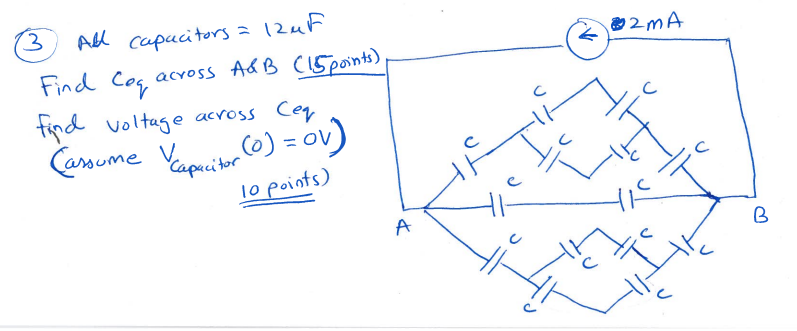 3 All capacitors = 12uF
Find Ceq across A&B (15 points)
find voltage across Ceq
(assume Vcapacitor (0) = 0V)
10 points)
← 2mA
C
C
C
C
C
C
C
C
A
B
C
C
C
C
C
C